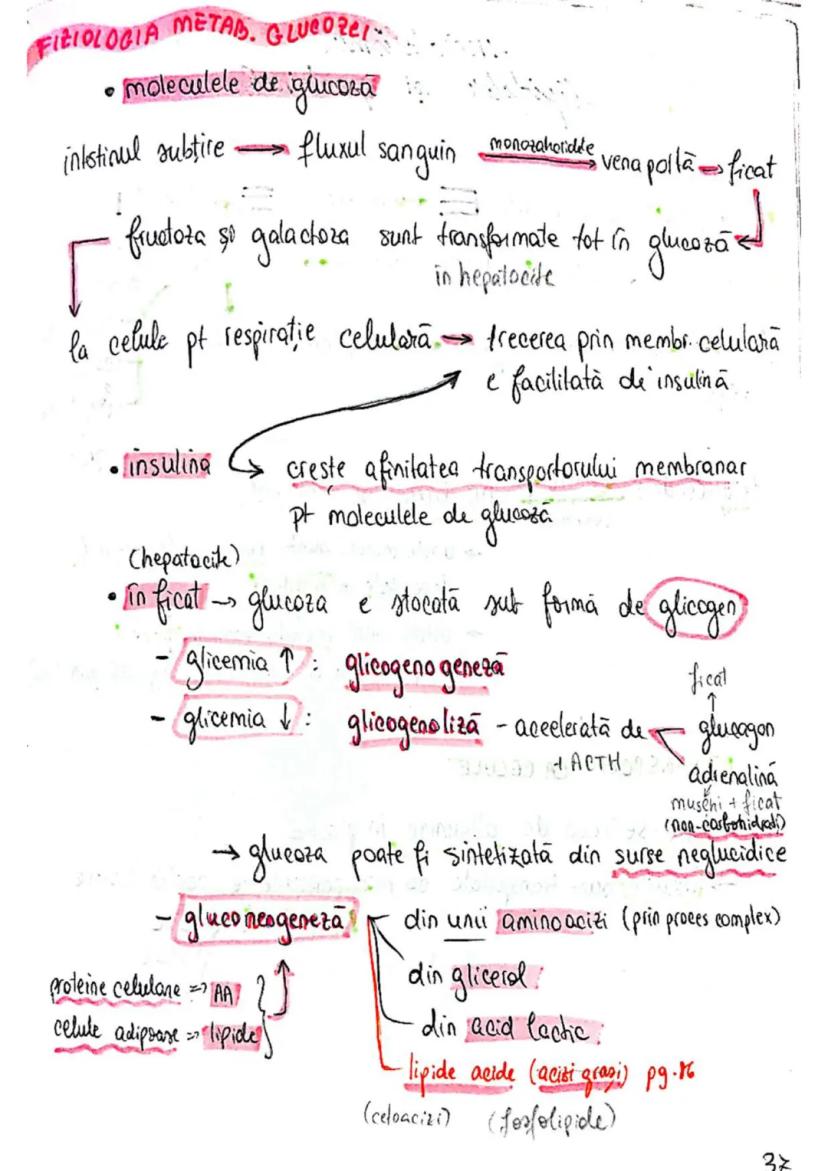 FIZIOLOGIA METAB. GLUCOZEI
• moleculele de glucoză
intestinul subțire → fluxul sanguin monozaharide → vena portă → ficat
fructoza și galactoza sunt transformate tot în glucoză
în hepatocite
la celule pt respirație celulară → trecerea prin membr. celulară
e facilitată de insulină
• insulina → crește afinitatea transportorului membranar
pt moleculele de glucoză
(hepatocite)
• în ficat → glucoza e stocată sub formă de glicogen
- glicemia ↑ : glicogenogeneză
ficat
↑
- glicemia ↓ : glicogenoliză - accelerată de glucagon
+ ACTH
adrenalină
mușchi + ficat
(non-carbohidrați)
→ glucoza poate fi sintetizată din surse neglucidice
- gluconeogeneză din unii aminoacizi (prin proces complex)
din glicerol
proteine celulare => AA
celule adipoase => lipide
din acid lactic
lipide acide (acizi grași) pg.
(cetoacizi) (fosfolipide)
37